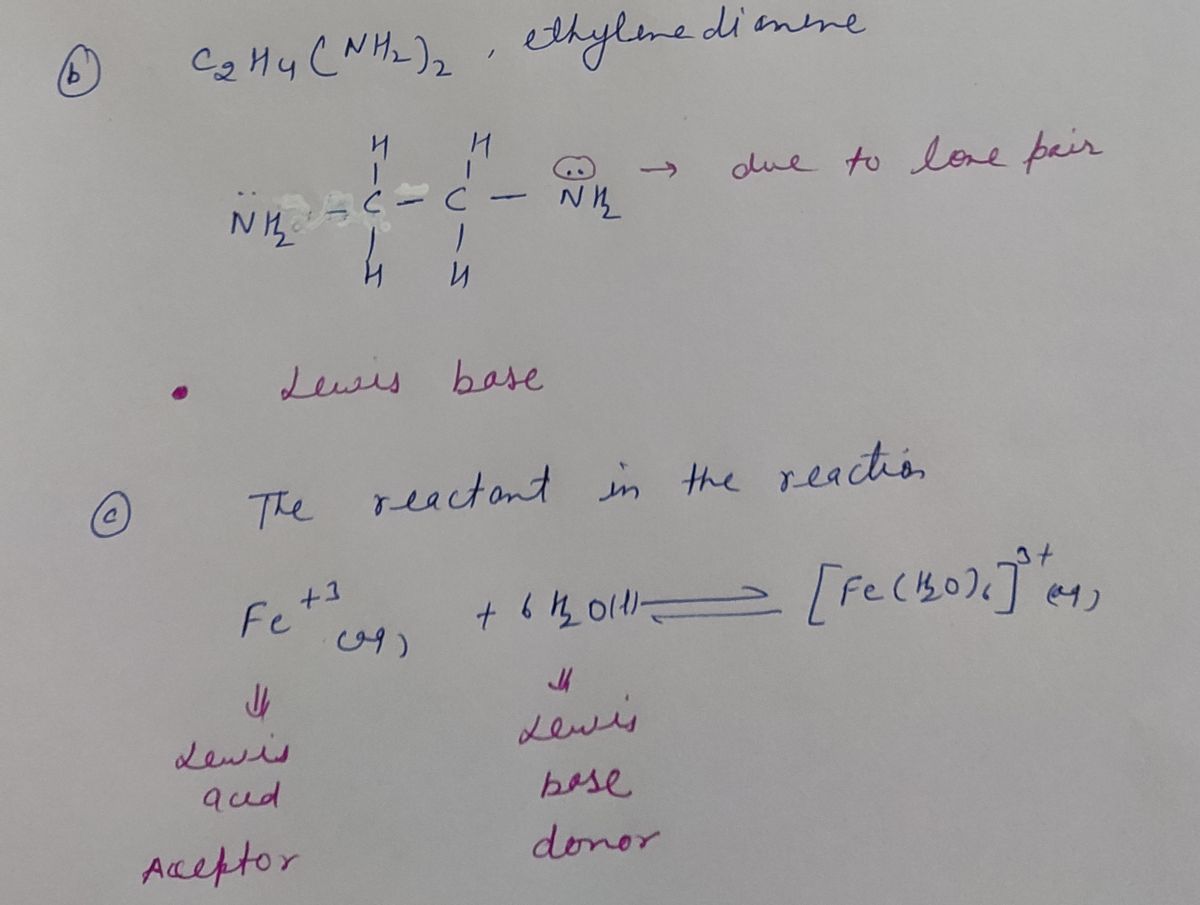 (b) C2H4(NH2)2, ethylenediamine
H H
| |
N̈H2 - C - C - N̈H2 → due to lone pair
| |
H H
• Lewis base
(c) The reactant in the reaction
Fe+3(aq) + 6H2O(l) ⇌ [Fe(H2O)6]3+(aq)
⇓ ⇓
Lewis Lewis
acid base
Acceptor donor